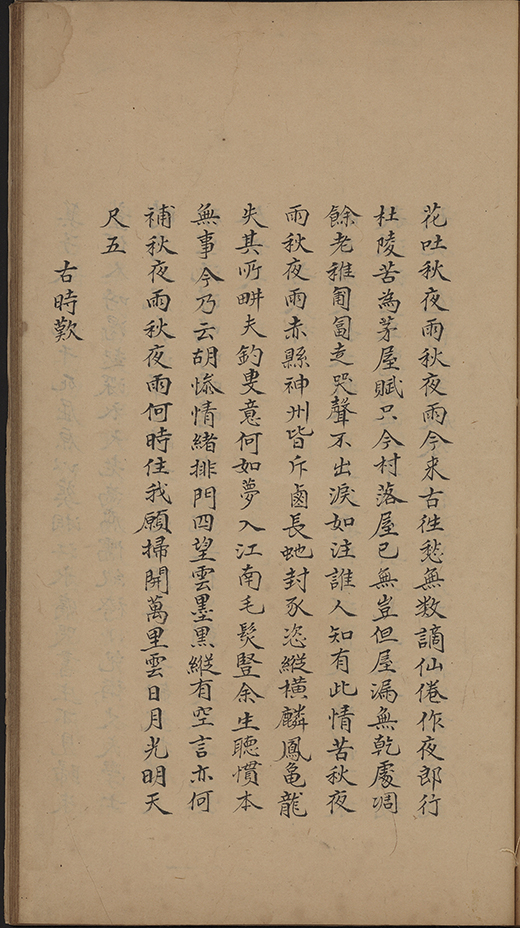 花吐秋夜雨秋夜雨今來古徃愁無数謫仙倦作夜郎行
杜陵苦為茅屋賦只今村落屋已無豈但屋漏無乾處凋
餘老稚匍匐走哭聲不出淚如注誰人知有此情苦秋夜
雨秋夜雨赤縣神州皆斥鹵長虵封豕恣縱橫麟鳳龜龍
失其所畊夫釣叟意何如夢入江南毛髮豎余生聽慣本
無事今乃云胡慘情緒排門四望雲墨黑縱有空言亦何
補秋夜雨秋夜雨何時住我願掃開萬里雲日月光明天
尺五
古時歎